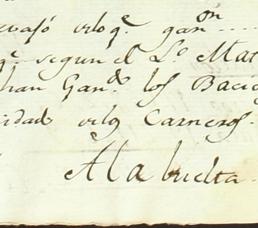 evajó vlo q.e gan.on ....
q.e segun el L.o Mat
han Gan.do los Bacig
idad vlos Carneros.
A la buelta.